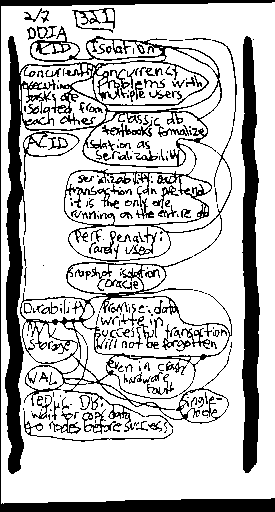 2/7 321
DDIA
ACID Isolation
Concurrently
executing
tasks are
isolated from
each other
Concurrency
problems with
multiple users
ACID
Classic db
textbooks formalize
isolation as
serializability
serializability: each
transaction can pretend
it is the only one
running on the entire db
Perf. penalty:
rarely used
snapshot isolation
(oracle)
Durability
Promise: data
written in
successful transaction
will not be forgotten
NV
storage
even in crash
hardware
fault
WAL
Single-
node
replic. DB:
wait for copy data
to nodes before success